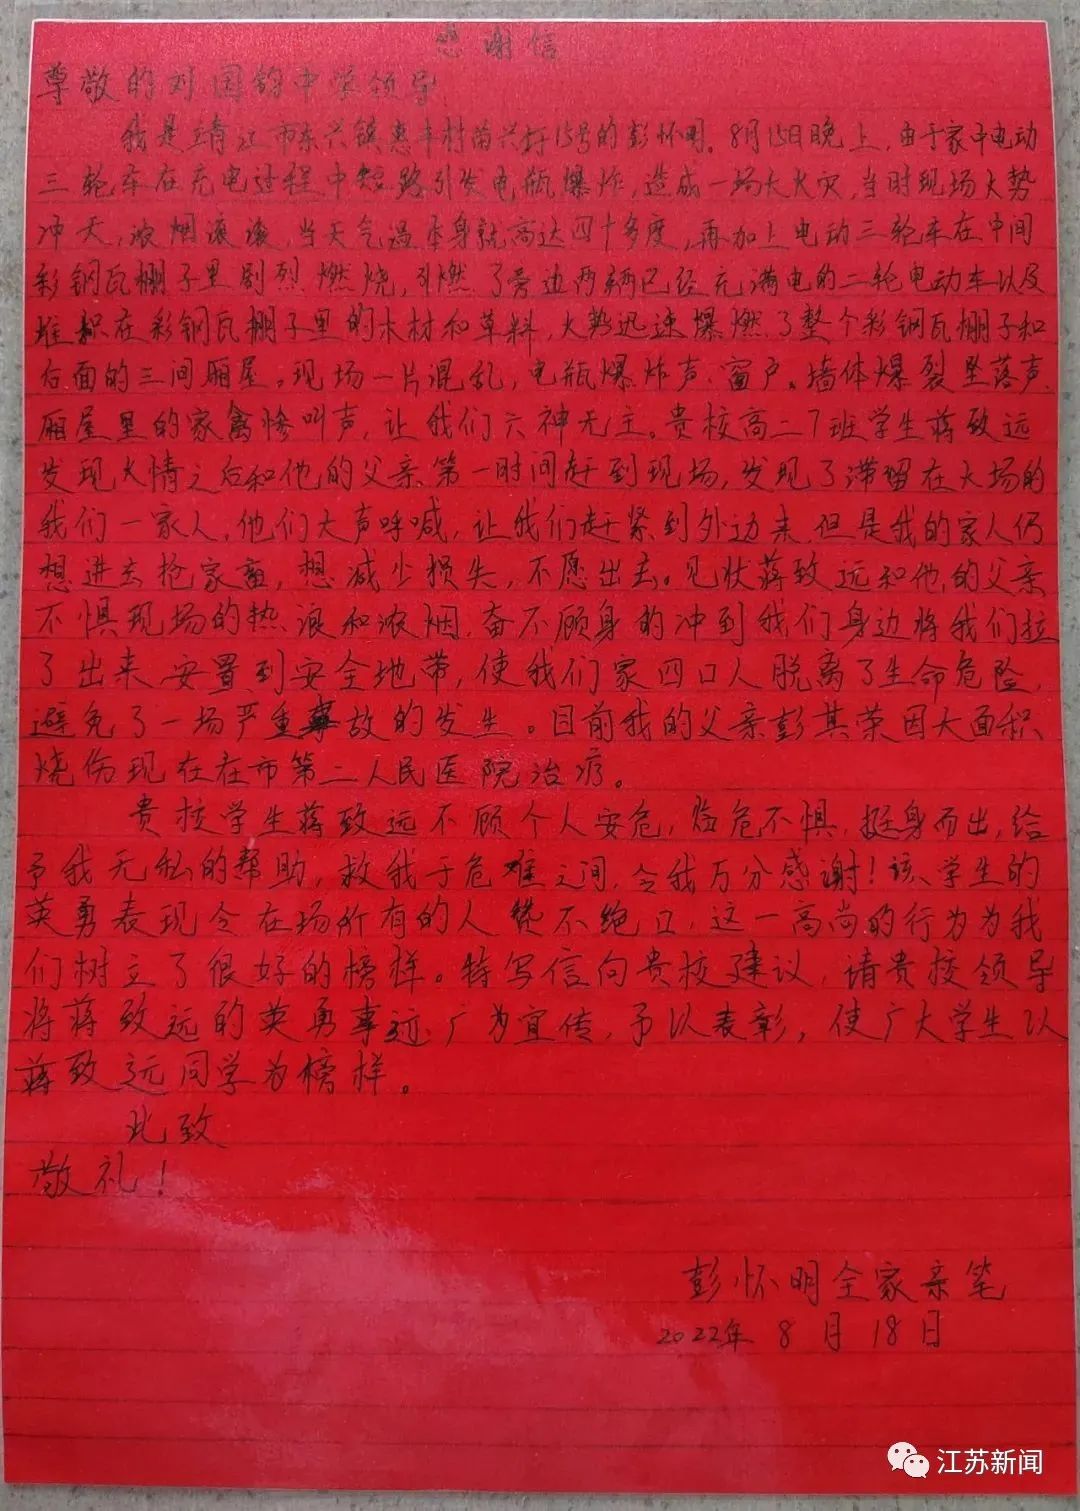 感谢信
尊敬的刘国钧中学领导
我是靖江市东兴镇惠丰村苗兴圩15号的彭怀明。8月15日晚上,由于家中电动
三轮车在充电过程中短路引发电瓶爆炸,造成一场大火灾,当时现场火势
冲天,浓烟滚滚,当天气温本身就高达四十多度,再加上电动三轮车在中间
彩钢瓦棚子里剧烈燃烧,引燃了旁边两辆已经充满电的二轮电动车以及
堆积在彩钢瓦棚子里的木材和草料,火势迅速爆燃了整个彩钢瓦棚子和
右面的三间厢屋。现场一片混乱,电瓶爆炸声、窗户。墙体爆裂坠落声、
厢屋里的家禽惨叫声,让我们六神无主。贵校高二7班学生蒋致远
发现火情之后和他的父亲第一时间赶到现场,发现了滞留在火场的
我们一家人,他们大声呼喊,让我们赶紧到外边来,但是我的家人仍
想进去抢家畜,想减少损失,不愿出去。见状蒋致远和他的父亲
不惧现场的热浪和浓烟,奋不顾身的冲到我们身边将我们拉
了出来安置到安全地带,使我们家四口人脱离了生命危险,
避免了一场严重事故的发生。目前我的父亲彭其荣因大面积
烧伤现在在市第二人民医院治疗。
贵校学生蒋致远不顾个人安危,临危不惧,挺身而出,给
予我无私的帮助,救我于危难之间,令我万分感谢!该学生的
英勇表现令在场所有的人赞不绝口,这一高尚的行为为我
们树立了很好的榜样。特写信向贵校建议,请贵校领导
将蒋致远的英勇事迹广为宣传,予以表彰,使广大学生以
蒋致远同学为榜样。
此致
敬礼!
彭怀明全家亲笔
2022年8月18日
江苏新闻